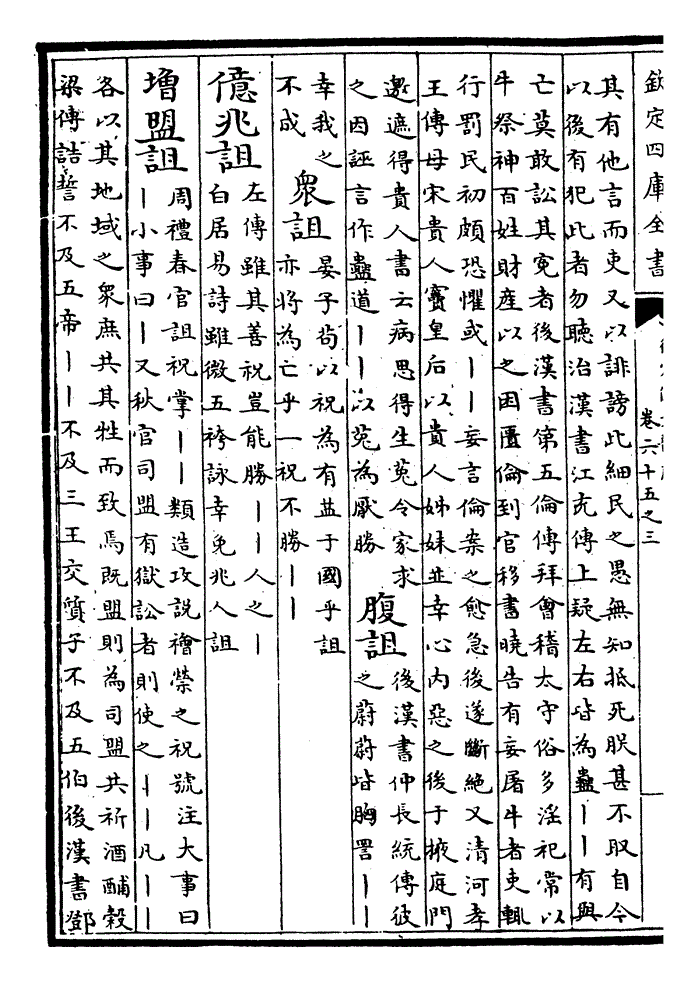 欽定四庫全書
卷六十五之三
其有他言而吏又以誹謗此細民之愚無知抵死朕甚不取自今
以後有犯此者勿聽治漢書江充傳上疑左右皆為蠱丨丨有與
亡莫敢訟其冤者後漢書第五倫傳拜會稽太守俗多淫祀常以
牛祭神百姓財產以之困匱倫到官移書曉告有妄屠牛者吏輒
行罰民初頗恐懼或丨丨妄言倫案之愈急後遂斷絕又清河孝
王傳母宋貴人竇皇后以貴人姊妹並幸心內惡之後于掖庭門
邀遮得貴人書云病思得生菟令家求
之因誣言作蠱道丨丨以菟為厭勝
腹詛
後漢書仲長統傳彼
之蔚蔚皆胸詈丨丨
幸我之
不成
衆詛
晏子茍以祝為有益于國乎詛
亦將為亡乎一祝不勝丨丨
億兆詛
左傳雖其善祝豈能勝丨丨人之丨
白居易詩雖微五袴詠幸免兆人詛
增
盟詛
周禮春官詛祝掌丨丨類造攻說禬禜之祝號注大事曰
丨小事曰丨又秋官司盟有獄訟者則使之丨丨凡丨丨
各以其地域之衆庶共其牲而致焉既盟則為司盟共祈酒脯穀
梁傳誥誓不及五帝丨丨不及三王交質子不及五伯後漢書鄧